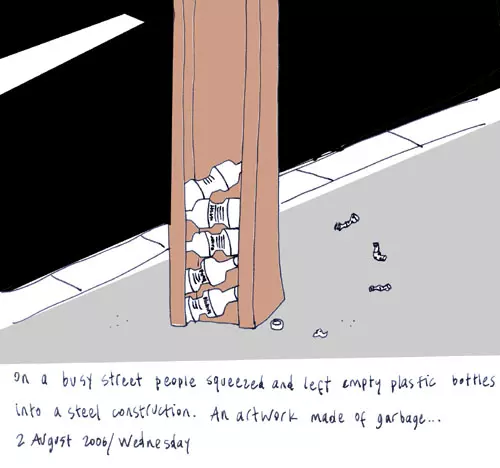 On a busy street people squeezed and left empty plastic bottles
into a steel construction. An artwork made of garbage...
2 August 2006/Wednesday